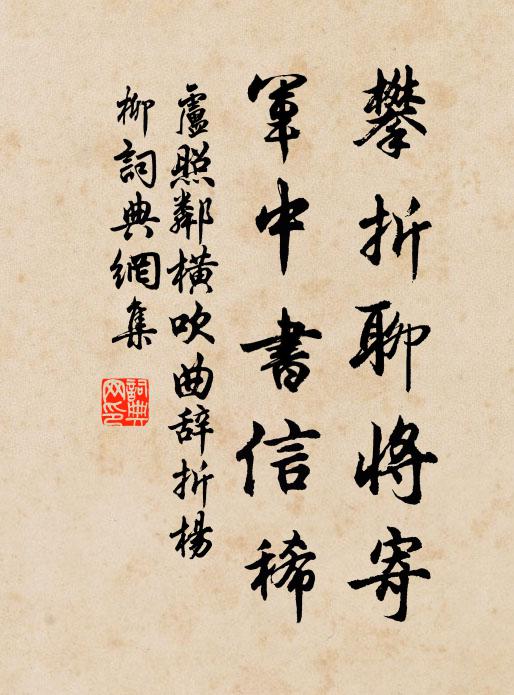 攀折聊將寄
軍中書信稀
盧照鄰橫吹曲辞折楊
柳詞典網集
詞典
网印